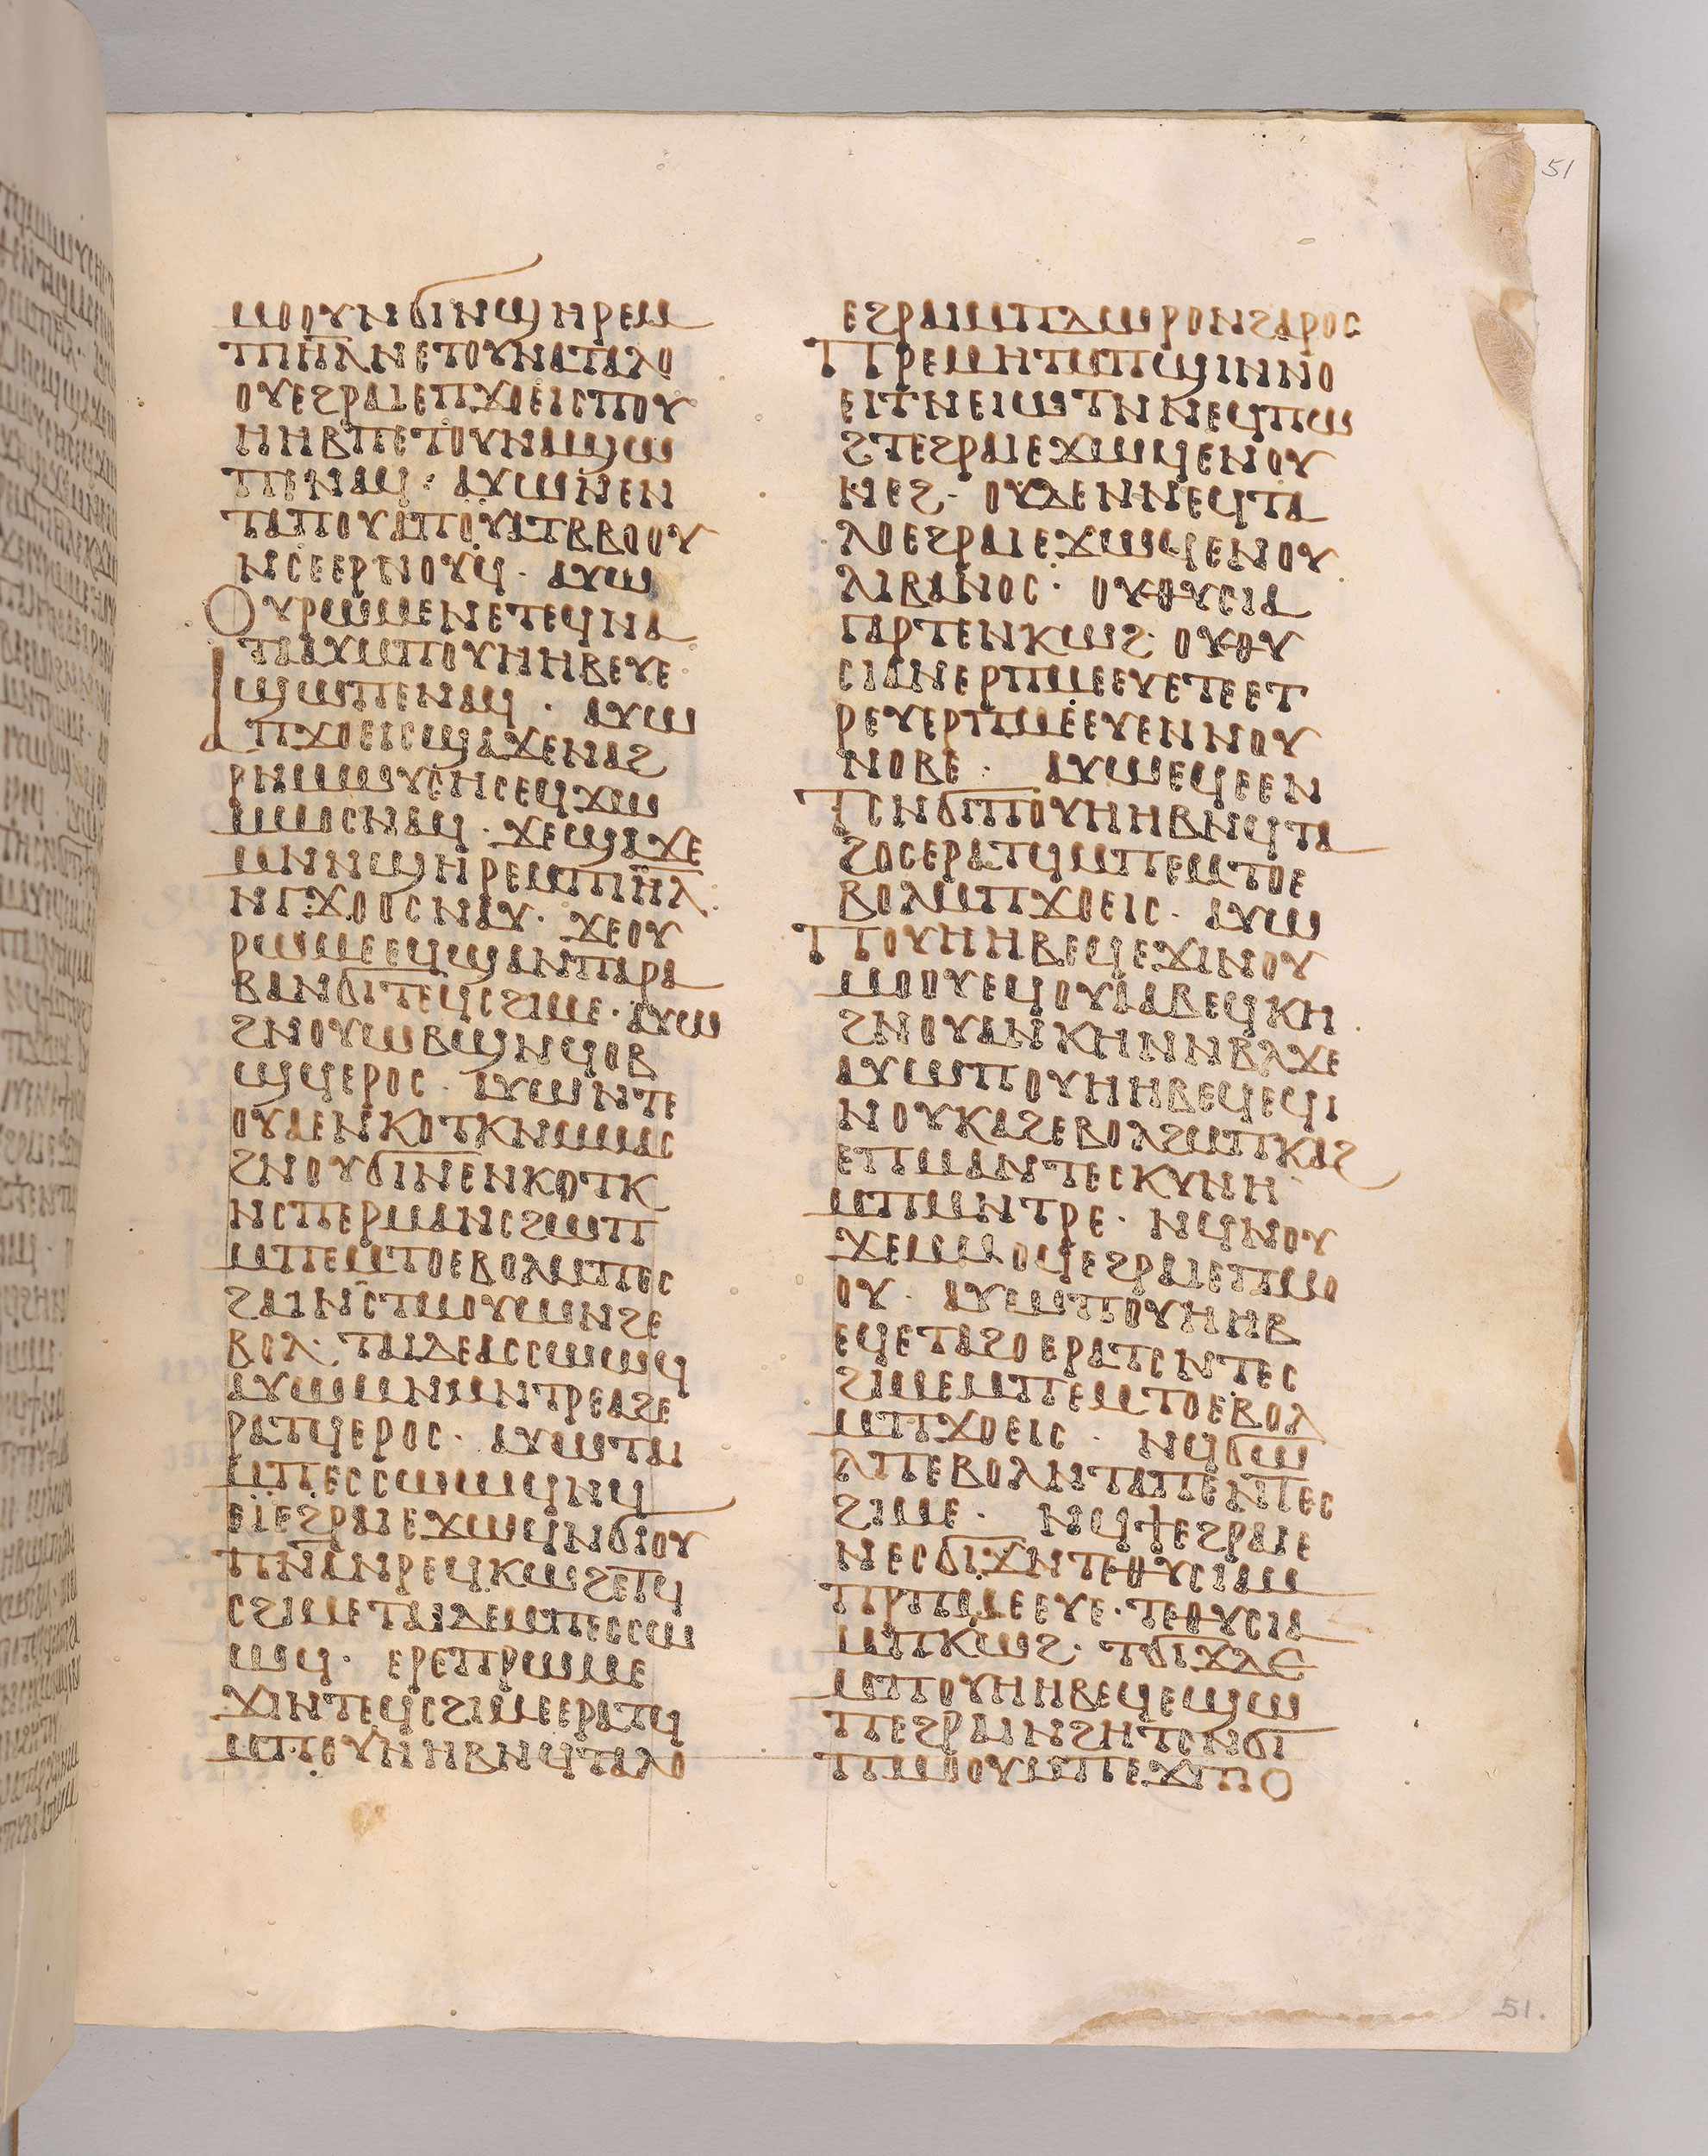 ⲙⲟⲟⲩⲛϭⲓⲛϣⲏⲣⲉⲙ
ⲡⲓⲏ̅ⲗ̅ⲛⲉⲧⲟⲩⲛⲁⲧⲁⲗⲟ
ⲟⲩⲉϩⲣⲁⲓⲉⲡϫⲟⲉⲓⲥⲡⲟⲩ
ⲏⲏⲃⲡⲉⲧⲟⲩⲛⲁϣⲱ
ⲡⲉⲛⲁϥ· ⲁⲩⲱⲛⲉⲛ
ⲧⲁⲡⲟⲩⲁⲡⲟⲩⲁⲧⲃⲃⲟⲟⲩ
ⲛⲥⲉⲉⲣⲛⲟⲩϥ· ⲁⲩⲱ
ⲟⲩⲣⲱⲙⲉⲛⲉⲧⲉϥⲛⲁ
ⲧⲁⲁⲩⲙⲡⲟⲩⲏⲏⲃⲉⲩⲉ
ϣⲱⲡⲉⲛⲁϥ· ⲁⲩⲱ
ⲁⲡϫⲟⲉⲓⲥϣⲁϫⲉⲛⲁϩ
ⲣⲛⲙⲱⲩⲥⲏⲥⲉϥϫⲱ
ⲙⲙⲟⲥⲛⲁϥ· ϫⲉϣⲁϫⲉ
ⲙⲛⲛϣⲏⲣⲉⲙⲡⲓⲏ̅ⲗ̅
ⲛⲅϫⲟⲟⲥⲛⲁⲩ· ϫⲉⲟⲩ
ⲣⲱⲙⲉⲉϥϣⲁⲛⲡⲁⲣⲁ
ⲃⲁⲛϭⲓⲧⲉϥⲥϩⲓⲙⲉ· ⲁⲩⲱ
ϩⲛⲟⲩⲱⲃϣⲛϥⲟⲃ
ϣϥⲉⲣⲟⲥ· ⲁⲩⲱⲛⲧⲉ
ⲟⲩⲁⲉⲛⲕⲟⲧⲕⲛⲙⲙⲁⲥ
ϩⲛⲟⲩϭⲓⲛⲉⲛⲕⲟⲧⲕ
ⲛⲥⲡⲉⲣⲙⲁⲛⲥϩⲱⲡ
ⲙⲡⲉⲙⲧⲟⲉⲃⲟⲗⲙⲡⲉⲥ
ϩⲁⲓⲛⲥⲧⲙⲟⲩⲱⲛϩⲉ
ⲃⲟⲗ· ⲧⲁⲓⲇⲉⲁⲥⲥⲱⲱϥ
ⲁⲩⲱⲙⲛⲙⲛⲧⲣⲉⲁϩⲉ
ⲣⲁⲧϥⲉⲣⲟⲥ· ⲁⲩⲱⲧⲁⲓ
ⲙⲡⲉⲥⲥⲱⲱϥⲛϥ
ⲉⲓⲉϩⲣⲁⲓⲉϫⲱϥⲛϭⲓⲟⲩ
ⲡ̅ⲛ̅ⲁ̅ⲛⲣⲉϥⲕⲱϩⲉⲧϥ
ⲥϩⲓⲙⲉⲧⲁⲓⲇⲉⲙⲡⲉⲥⲥⲱ
ⲱϥ· ⲉⲣⲉⲡⲣⲱⲙⲉ
ϫⲓⲛⲧⲉϥⲥϩⲓⲙⲉⲉⲣⲁⲧϥ
ⲙⲡⲟⲩⲏⲏⲃⲛϥⲧⲁⲗⲟ
ⲉϩⲣⲁⲓⲙⲡⲇⲱⲣⲟⲛϩⲁⲣⲟⲥ
ⲡⲣⲉⲙⲏⲧⲙⲡϣⲓⲛⲛⲟ
ⲉⲓⲧⲛⲉⲓⲱⲧⲛⲛⲉϥⲡⲱ
ϩⲧⲉϩⲣⲁⲓⲉϫⲱϥⲉⲛⲟⲩ
ⲛⲉϩ· ⲟⲩⲇⲉⲛⲛⲉϥⲧⲁ
ⲗⲟⲉϩⲣⲁⲓⲉϫⲱϥⲉⲛⲟⲩ
ⲗⲓⲃⲁⲛⲟⲥ· ⲟⲩⲑⲩⲥⲓⲁ
ⲅⲁⲣⲧⲉⲛⲕⲱϩ· ⲟⲩⲑⲩ
ⲥⲓⲁⲛⲉⲣⲡⲙⲉⲉⲩⲉⲧⲉⲉⲧ
ⲣⲉⲩⲉⲣⲡⲙⲉⲉⲩⲉⲛⲛⲟⲩ
ⲛⲟⲃⲉ· ⲁⲩⲱⲉϥⲉⲉⲛ
ⲧⲥⲛϭⲓⲡⲟⲩⲏⲏⲃⲛϥⲧⲁ
ϩⲟⲥⲉⲣⲁⲧϥⲙⲡⲉⲙⲧⲟⲉ
ⲃⲟⲗⲙⲡϫⲟⲉⲓⲥ· ⲁⲩⲱ
ⲡⲟⲩⲏⲏⲃⲉϥⲉϫⲓⲛⲟⲩ
ⲙⲟⲟⲩⲉϥⲟⲩⲁⲁⲃⲉϥⲕⲏ
ϩⲛⲟⲩⲁⲛⲕⲏⲛⲛⲃⲗϫⲉ
ⲁⲩⲱⲡⲟⲩⲏⲏⲃⲉϥⲉϥⲓ
ⲛⲟⲩⲕⲁϩⲉⲃⲟⲗϩⲙⲡⲕⲁϩ
ⲉⲡⲙⲁⲛⲧⲉⲥⲕⲩⲛⲏ
ⲙⲡⲙⲛⲧⲣⲉ· ⲛϥⲛⲟⲩ
ϫⲉⲙⲙⲟϥⲉϩⲣⲁⲓⲉⲡⲙⲟ
ⲟⲩ· ⲁⲩⲱⲡⲟⲩⲏⲏⲃ
ⲉϥⲉⲧⲁϩⲟⲉⲣⲁⲧⲥⲛⲧⲉⲥ
ϩⲓⲙⲉⲙⲡⲉⲙⲧⲟⲉⲃⲟⲗ
ⲙⲡϫⲟⲉⲓⲥ· ⲛϥϭⲱ
ⲗⲡⲉⲃⲟⲗⲛⲧⲁⲡⲉⲛⲧⲉⲥ
ϩⲓⲙⲉ· ⲛϥϯⲉϩⲣⲁⲓⲉ
ⲛⲉⲥϭⲓϫⲛⲧⲉⲑⲩⲥⲓⲁⲙ
ⲡⲣⲡⲙⲉⲉⲩⲉ· ⲧⲉⲑⲩⲥⲓⲁ
ⲙⲡⲕⲱϩ· ⲧϭⲓϫⲇⲉ
ⲙⲡⲟⲩⲏⲏⲃⲉϥⲉϣⲱ
ⲡⲉϩⲣⲁⲓⲛϩⲏⲧⲥⲛϭⲓ
ⲡⲙⲟⲟⲩⲙⲡⲉϫⲡⲓⲟ
51
51.